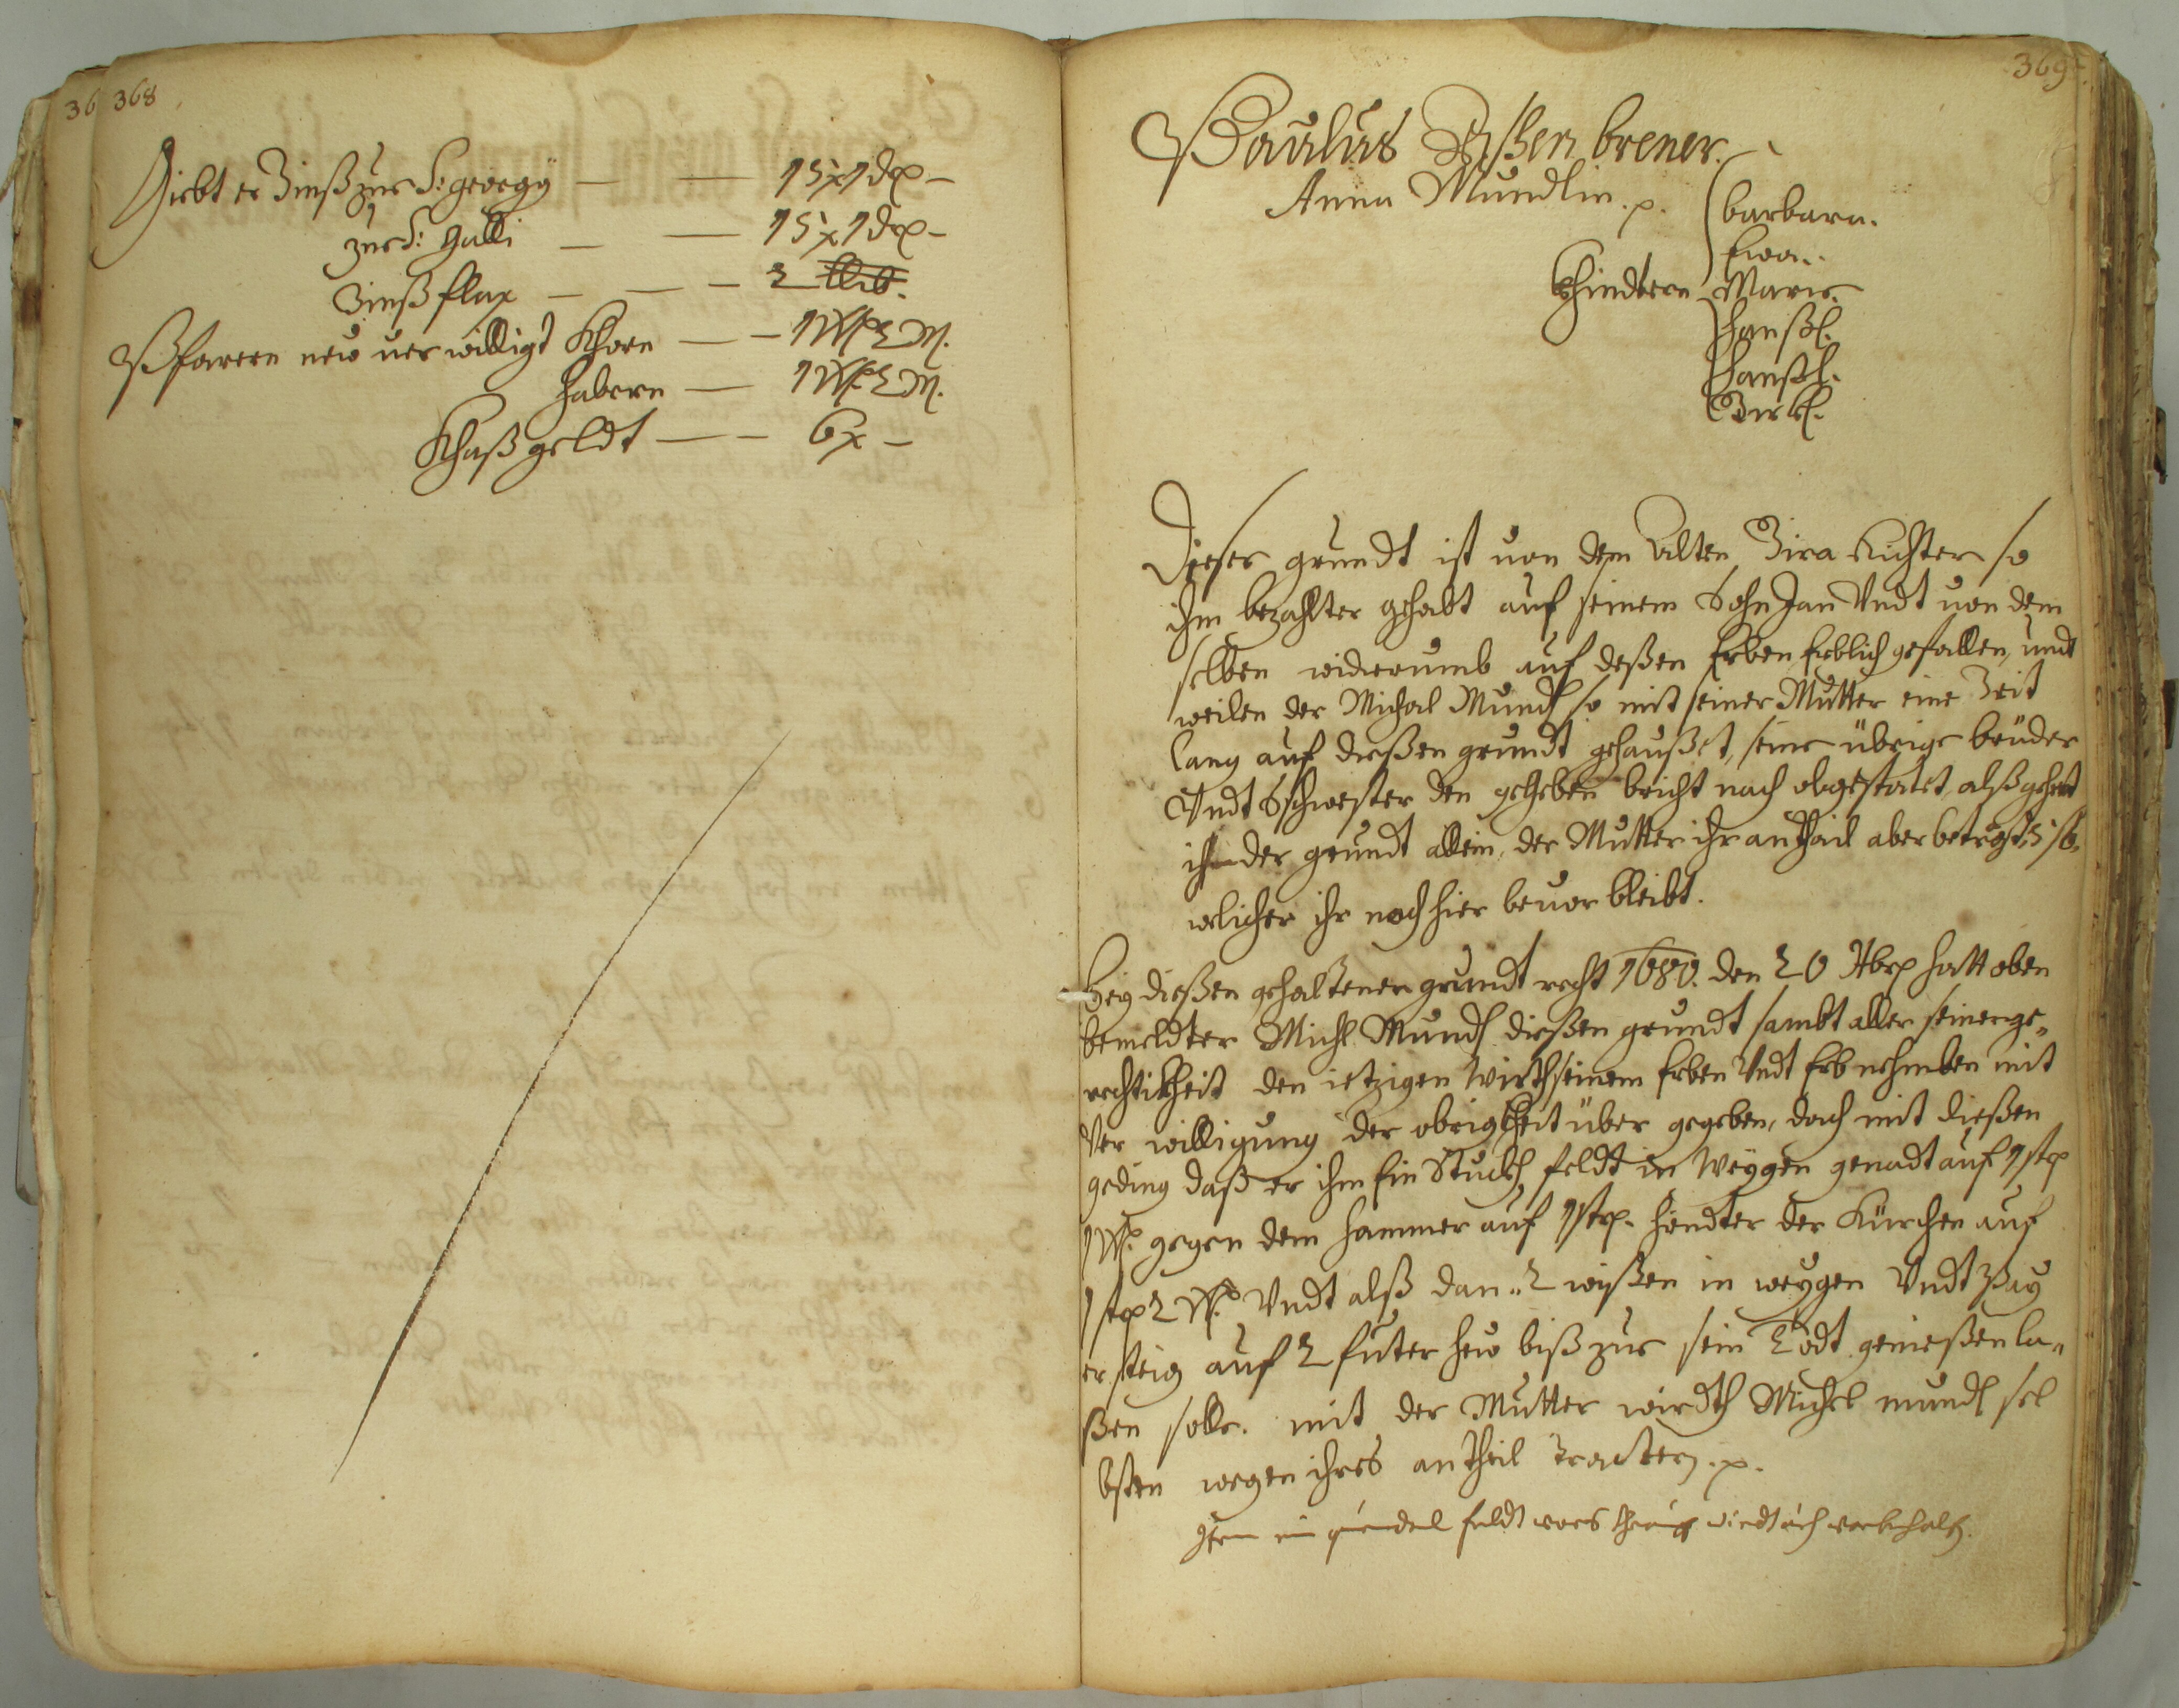 36 368
Giebt er Zinß zue S: georgÿ — — 15 x 1 dℓ —
zue S: Galli — — 15 x 1 dℓ —
Zinß flax — — — 2
Pfarern new verwilligt Khorn — — 1 M.
habern — 1 M.
Khaß geldt — — 6 x —
369
Paulus Aßenbrener.
Anna Mundlin. p.
barbara.
Ewa.
Khindtern Marie.
Hanßl.
Dieser grundt ist von dem Alten Zira Richter so
ihm bezahlter gehabt auf seinem Sohn Jan Undt von dem
selben widerumb auf deßen Erben Erblich gefallen, undt
weilen der Michal Mundl so mit seiner Mutter eine Zeit
lang auf dießen grundt gehaußet, seine übrige brüder
Undt Schwester den bricht nach abgestatet, alß gehert
ihm der grundt allein, der Mutter ihr antheil aber betregt
welicher ihr noch hier bevor bleibt.
Beÿ dießen gehaltenen grundt recht 1680. den 20 hatt oben
bemeldter Michl Mundl dießen grundt sambt aller seiner ge„
rechtikheit den ietzigen Wirth seinem Erben Undt Erbnehmben mit
Verwilligung der obrigkheit über gegeben, doch mit dießen
geding daß er ihm Ein Stuckh feldt in Weÿgen genadt auf 1 str
1 gegen dem hammer auf 1 str. hindter der Kürchen auf
1 str 2 Undt alß dan „ 2 wißen in weÿgen Undt
er steig auf 2 futer hew biß zue sein Todt genießen la„
ßen solle. mit der Mutter wirdth Michel mundl sel
bsten wegen ihres antheil Tracten. p.
Item ein feldt